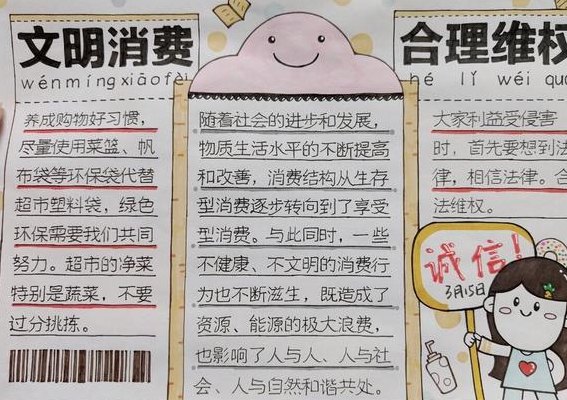 文明消费
wénmíngxiāofèi
养成购物好习惯,
尽量使用菜篮、帆
布袋等环保袋代替
超市塑料袋,绿色
环保需要我们共同
努力。超市的净菜
特别是蔬菜,不要
过分挑拣。
随着社会的进步和发展,
物质生活水平的不断提高
和改善,消费结构从生存
型消费逐步转向到了享受
型消费。与此同时,一些
不健康、不文明的消费行
为也不断滋生,既造成了
资源、能源的极大浪费,
也影响了人与人、人与社
会、人与自然和谐共处。
合理维权
hé lǐ wéi qu
大家利益受侵害
时,首先要想到法
律,相信法律。合
法维权。
诚信!
3月15日